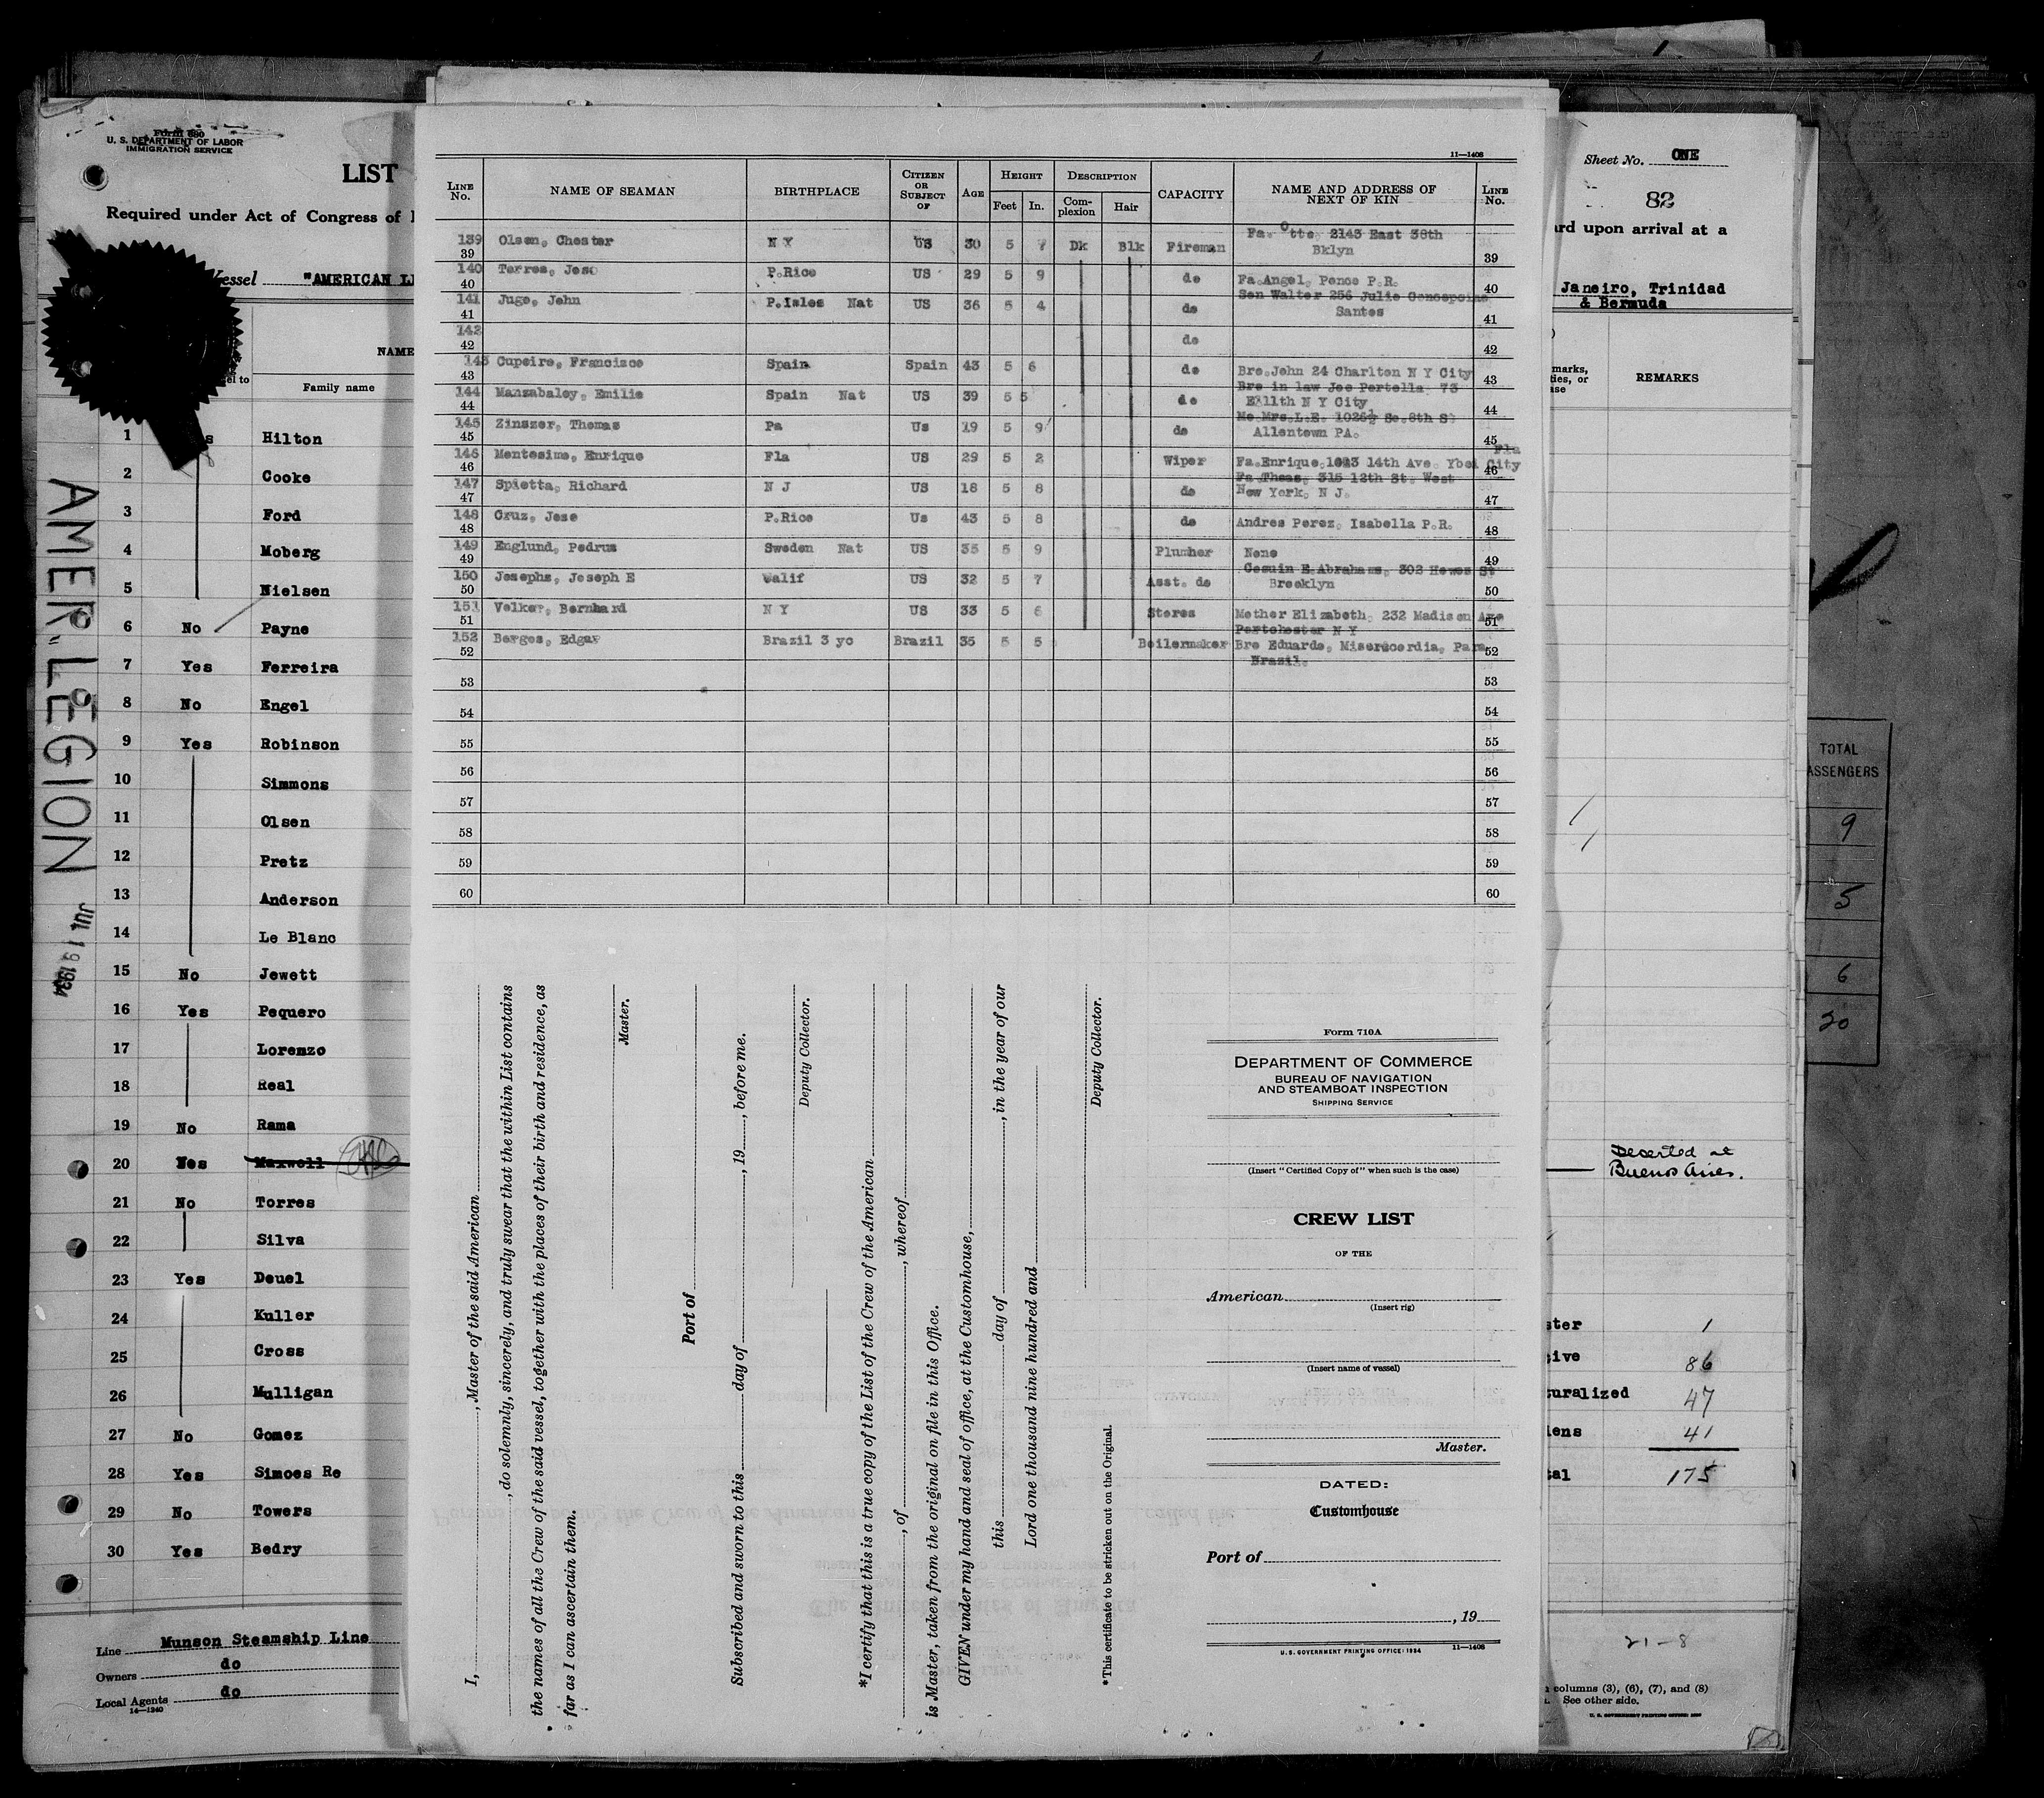 Form 680
U. S. DEPARTMENT OF LABOR
IMMIGRATION SERVICE
LIST
Required under Act of Congress of
Vessel "AMERICAN LE
NAME
Family name
AMER. LEGION JUL 19 1934
1 Hilton
2 Cooke
3 Ford
4 Moberg
5 Nielsen
6 No Payne
7 Yes Ferreira
8 No Engel
9 Yes Robinson
10 Simmons
11 Olsen
12 Pretz
13 Anderson
14 Le Blanc
15 No Jewett
16 Yes Pequero
17 Lorenzo
18 Real
19 No Rama
20 Yes Maxwell
21 No Torres
22 Silva
23 Yes Deuel
24 Kuller
25 Cross
26 Mulligan
27 No Gomez
28 Yes Simoes Re
29 No Towers
30 Yes Bedry
Line Munson Steamship Line
Owners do
Local Agents do
14—1240
11—1408
LINE No. NAME OF SEAMAN BIRTHPLACE CITIZEN OR SUBJECT OF AGE HEIGHT Feet In. DESCRIPTION Complexion Hair CAPACITY NAME AND ADDRESS OF NEXT OF KIN LINE No.
139 39 Olsen, Chester N Y US 30 5 7 Dk Blk Fireman Fa. Otto, 2143 East 38th Bklyn 39
140 40 Torres, Jose P.Rico US 29 5 9 do Fa.Angel, Ponce P.R. 40
141 41 Juge, John P.Isles Nat US 36 5 4 do Son Walter 256 Julio Santos 41
142 42 do 42
143 43 Cupeiro, Francisco Spain Spain 43 5 6 do Bro.John 24 Charlton N Y City 43
144 44 Manzabaley, Emilio Spain Nat US 39 5 5 do Bro in law Joe Portella 73 E 111th N Y City 44
145 45 Zinszer, Thomas Pa Us 19 5 9 do Mo Mrs.L.E. 1026½ So.8th St Allentown PA. 45
146 46 Montesimo, Enrique Fla US 29 5 2 Wiper Fa.Enrique, 14th Ave Ybor City Fla 46
147 47 Spietta, Richard N J US 18 5 8 do Fa Thomas, 315 12th St. West New York, N J. 47
148 48 Cruz, Jose P.Rico Us 43 5 8 do Andres Perez, Isabella P.R. 48
149 49 Englund, Pedrus Sweden Nat US 35 5 9 Plumber None 49
150 50 Josephs, Joseph E Calif US 32 5 7 Asst. do Cousin E.Abrahams, 302 Hewes St Brooklyn 50
151 51 Volker, Bernhard N Y US 33 5 6 Stores Mother Elizabeth, 232 Madison Ave Portchester N Y 51
152 52 Borges, Edgar Brazil 3 yo Brazil 35 5 5 Boilermaker Bro Eduardo, Misericordia, Para Brazil. 52
53 53
54 54
55 55
56 56
57 57
58 58
59 59
60 60
I, , Master of the said American
, do solemnly, sincerely, and truly swear that the within List contains
the names of all the Crew of the said vessel, together with the places of their birth and residence, as
far as I can ascertain them.
Master.
Port of
Subscribed and sworn to this day of , 19 , before me.
Deputy Collector.
*I certify that this is a true copy of the List of the Crew of the American
, of , whereof
is Master, taken from the original on file in this Office.
GIVEN under my hand and seal of office, at the Customhouse,
this day of , in the year of our
Lord one thousand nine hundred and
Deputy Collector.
*This certificate to be stricken out on the Original.
Form 710A
DEPARTMENT OF COMMERCE
BUREAU OF NAVIGATION
AND STEAMBOAT INSPECTION
SHIPPING SERVICE
(Insert "Certified Copy of" when such is the case)
CREW LIST
OF THE
American
(Insert rig)
(Insert name of vessel)
Master.
DATED:
Customhouse
Port of
, 19
U. S. GOVERNMENT PRINTING OFFICE: 1934 11—1408
Sheet No. ONE
82
ard upon arrival at a
Janeiro, Trinidad
& Bermuda
REMARKS
Deserted at
Buenos Aires.
ster 1
tive 86
turalized 47
iens 41
tal 175
21-8
columns (3), (6), (7), and (8)
See other side.
TOTAL
PASSENGERS
9
5
6
20